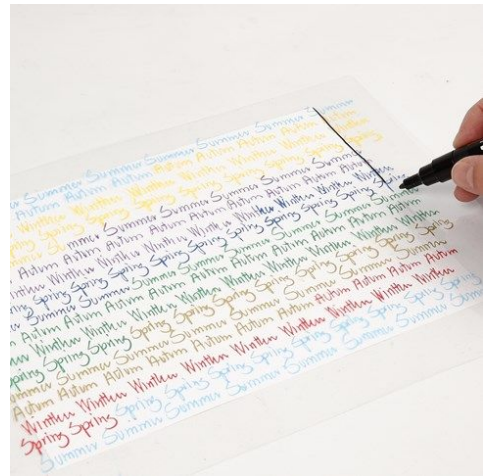 Summer Summer Summer Summer Summer
Autum Autum Autum Autum Autum Autum Autum
Winther Winther Winther Winther Winther Winther
Spring Spring Spring Spring Spring Spring Spring
Summer Summer Summer Summer Summer
Autum Autum Autum Autum Autum Autum Autum
Winther Winther Winther Winther Winther Winther
Spring Spring Spring Spring Spring Spring Spring
Summer Summer Summer Summer Summer Summer
Autum Autum Autum Autum Autum Autum Autum
Winther Winther Winther Winther Winther Winther
Spring Spring Spring Spring Spring Spring Spring Spring
Summer Summer Summer Summer Summer
Autum Autum Autum Autum Autum Autum Autum Autum
Winther Winther Winther Winther Winther Winther Winther
Spring Spring Spring Spring Spring Spring Spring Spring
Summer Summer Summer Summer Summer Summer